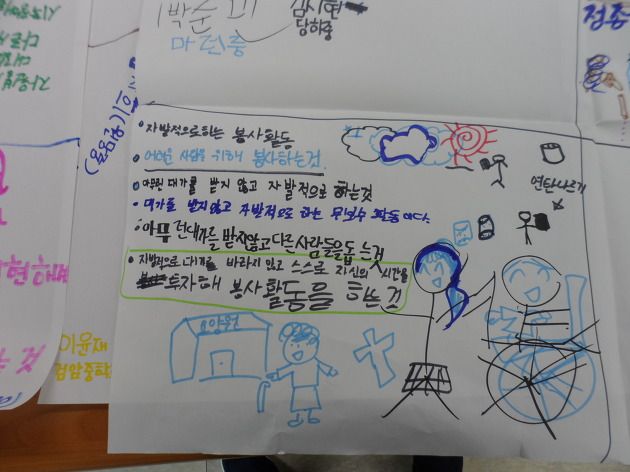 박준
김시현
당하중
마전중
점종
이윤재
검암중학
현해면
는 것
• 자발적으로하는 봉사활동
• 어려운 사람을 위해 봉사하는것.
• 아무런 대가를 받지 않고 자발적으로 하는것
• 대가를 받지않고 자발적으로 하는 무보수 활동이다.
• 아무런대가를 받지않고 다른사람들을돕는것
• 자발적으로 대가를 바라지 않고 스스로 자신의 시간을
투자해 봉사활동을 하는것
연탄나르기
요양원